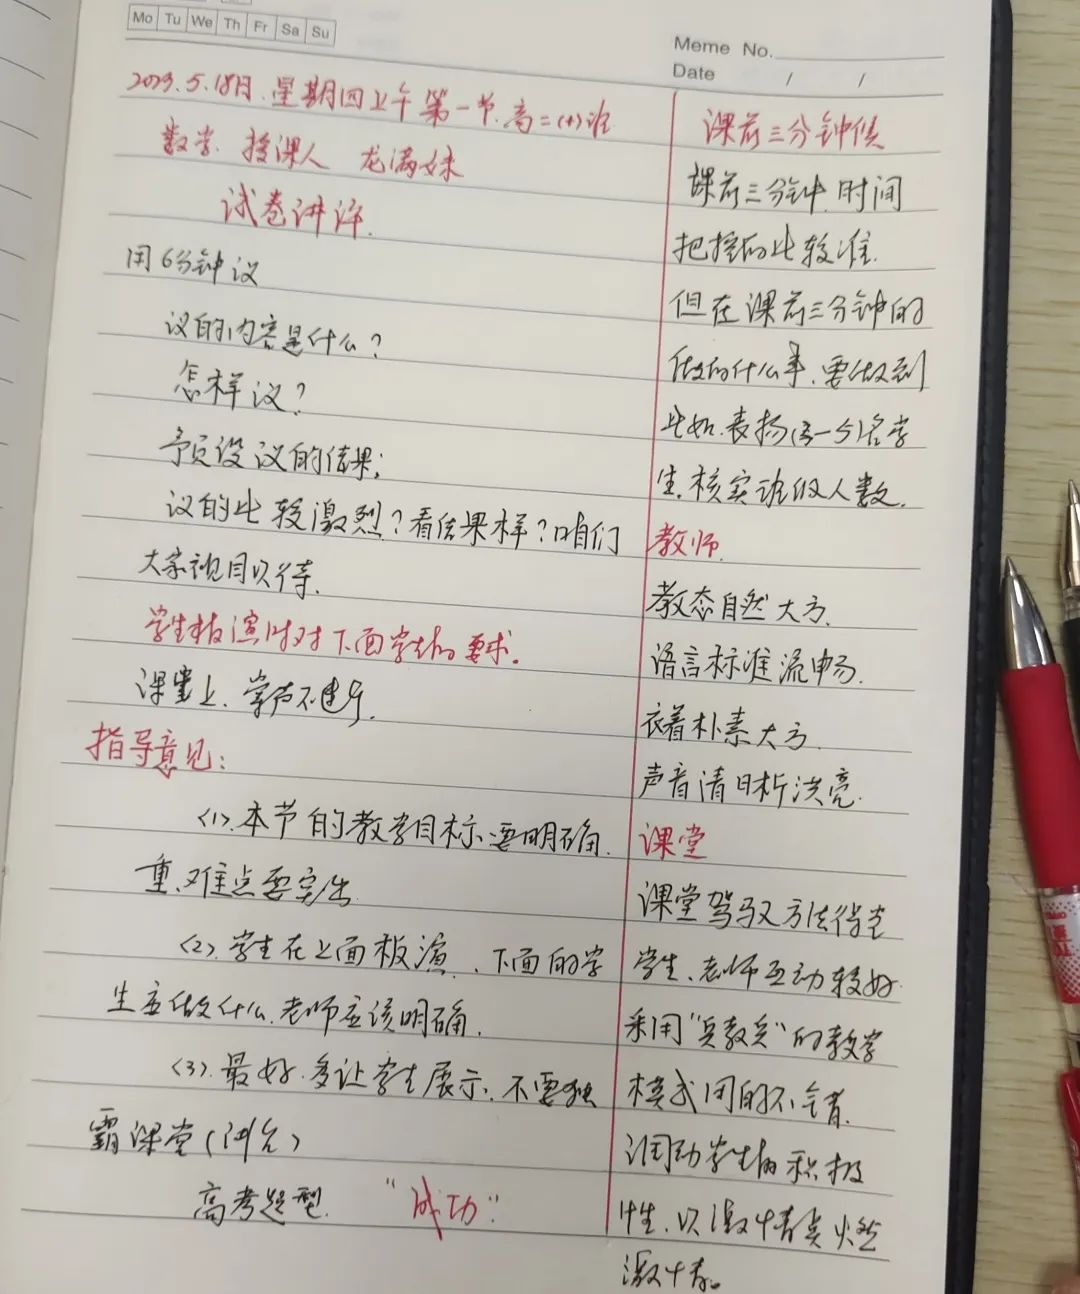 Mo Tu We Th Fr Sa Su
Meme No.
Date / /
2023.5.18日.星期四上午第一节.高二(4)班
数学.授课人 龙满妹
试卷讲评.
用6分钟议
议的内容是什么?
怎样议?
予员设议的结果;
议的比较激烈?看结果样?咱们
大家视目以待.
学生板演时对下面学生的要求.
课堂上、学声不连乎.
指导意见:
(1).本节的教学目标.要明确.
重.难点要突出
(2).学生在上面板演、下面的学
生应做什么.老师应该明确.
(3).最好.多让学生展示.不要独
霸课堂(讲台)
高考题型. "成功".
课前三分钟候
课前三分钟.时间
把控的比较准.
但在课前三分钟的
做的什么事.要做到
比如.表扬(3-5)名学
生.核实班级人数.
教师.
教态自然大方.
语言标准流畅.
衣着朴素大方.
声音清晰洪亮.
课堂
课堂驾驭方法得当
学生、老师互动较好.
采用"兵教兵"的教学
模式用的不错.
调动学生的积极
性.以激情点燃
激情。